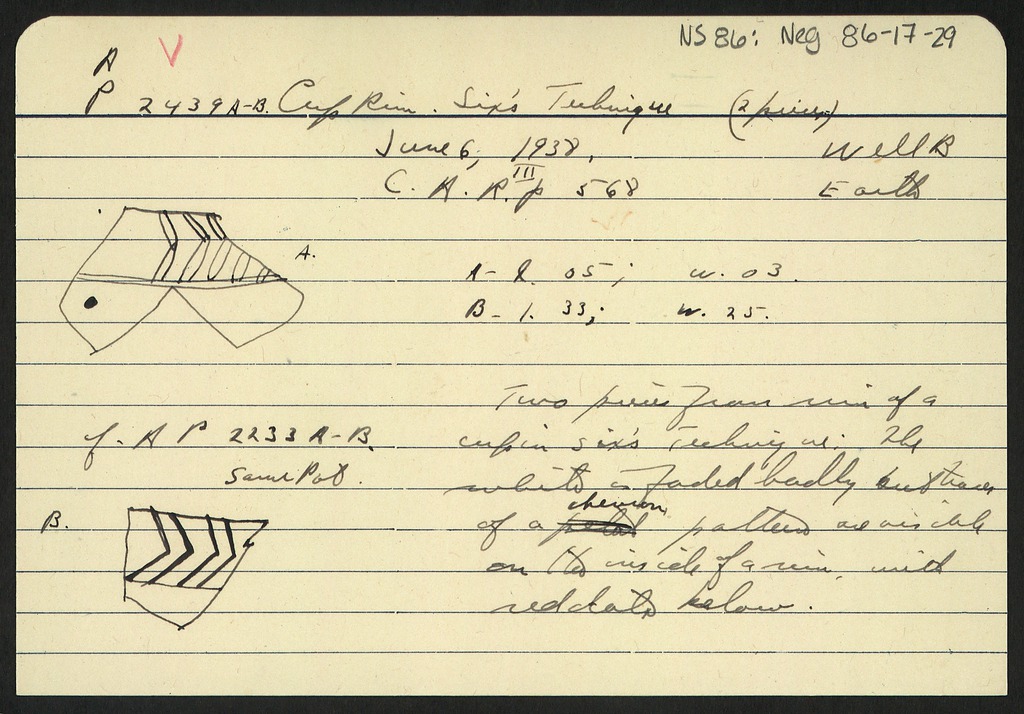 NS 86: Neg 86-17-29
A V
P 2439 A-B. Cup Rim. Six's Technique (2 pieces)
June 6, 1938. Well B
C. A. R. III p 568 Earth
A.
A- l. 05; w. 03.
B- l. 33; w. 25.
Two pieces from rim of a
cf. A P 2233 A-B. cup in six's technique. The
Same Pot. white is faded badly but traces
B. of a chevron pattern are visible
on the inside of a rim, with
red dots below.